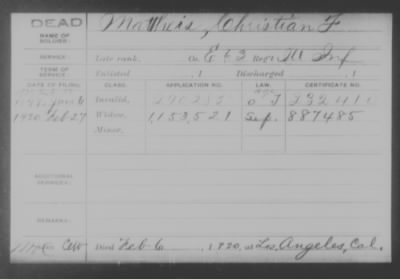 DEAD
NAME OF SOLDIER:
Mattheis, Christian F
SERVICE:
Late rank, Co. E 63 Reg't Ill Inf
TERM OF SERVICE:
Enlisted , 1 Discharged , 1
DATE OF FILING. CLASS. APPLICATION NO. LAW. CERTIFICATE NO.
Invalid,
1920 Feb 27 Widow, 1,153,521 Sep. 887485
Minor,
ADDITIONAL SERVICES:
REMARKS:
Died Feb 6 , 1920, at Los Angeles, Cal.